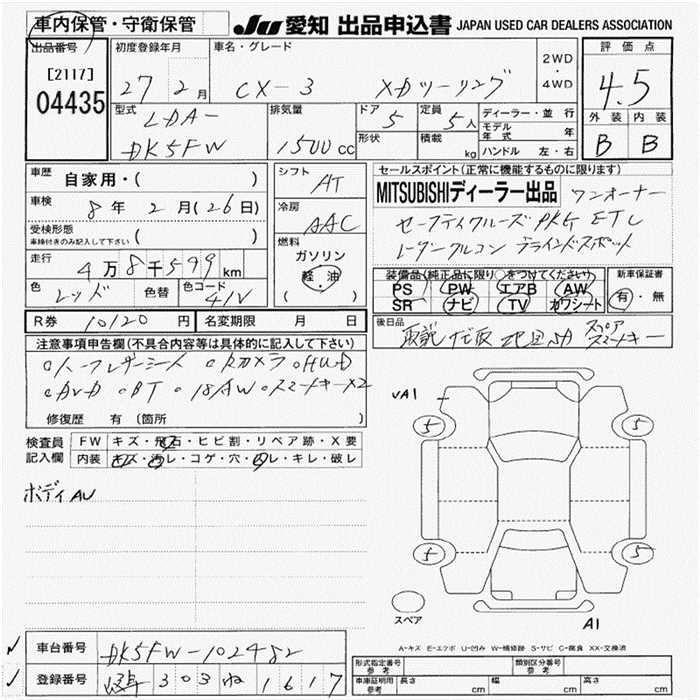 車内保管・守衛保管 JU 愛知 出品申込書 JAPAN USED CAR DEALERS ASSOCIATION
出品番号 初度登録年月 車名・グレード 評価点
[2117] 27年 2月 CX-3 XDツーリング 2WD・4WD 4.5
04435
型式 排気量 ドア 定員 ディーラー・並行 外装 内装
LDA- 5 5人 モデル年式 年 B B
DK5FW 1500cc 形状 積載 kg ハンドル 左・右
車歴 自家用・( ) シフト AT セールスポイント(正常に機能するものに限ります)
車検 8年 2月(26日) 冷房 AAC MITSUBISHIディーラー出品 ワンオーナー
受検形態 車検付きのみ記入して下さい ( ) 燃料 セーフティクルーズPKG ETC
走行 4万8千599km ガソリン レーダークルコン ブラインドスポット
(軽・油)
装備品(純正品に限り○をつけてください) 新車保証書
色 レッド 色替 色コード 41V PS PW エアB AW 有・無
SR ナビ TV カワシート
R券 10120円 名変期限 月 日 後日品
取説 保証 地図SD スペアスマートキー
注意事項申告欄(不具合内容等は具体的に記入して下さい)
○ハーフレザーシート ○Bカメラ ○HUD
○DVD ○BT ○18AW ○スマートキー×2
修復歴 有 〔箇所 〕
検査員記入欄 FW キズ・飛石・ヒビ割・リペア跡・X要
内装 キズ・汚レ・コゲ・穴・ヌレ・キレ・破レ
ボディAU
A1
5 5
5 5
スペア
A1
A-キズ E-エクボ U-凹み W-補修跡 S-サビ C-腐食 XX-交換済
車台番号 DK5FW-102482
型式指定番号 参考 類別区分番号 参考
登録番号 303 ね 1617
車庫証明用参考 長さ cm 幅 cm 高さ cm